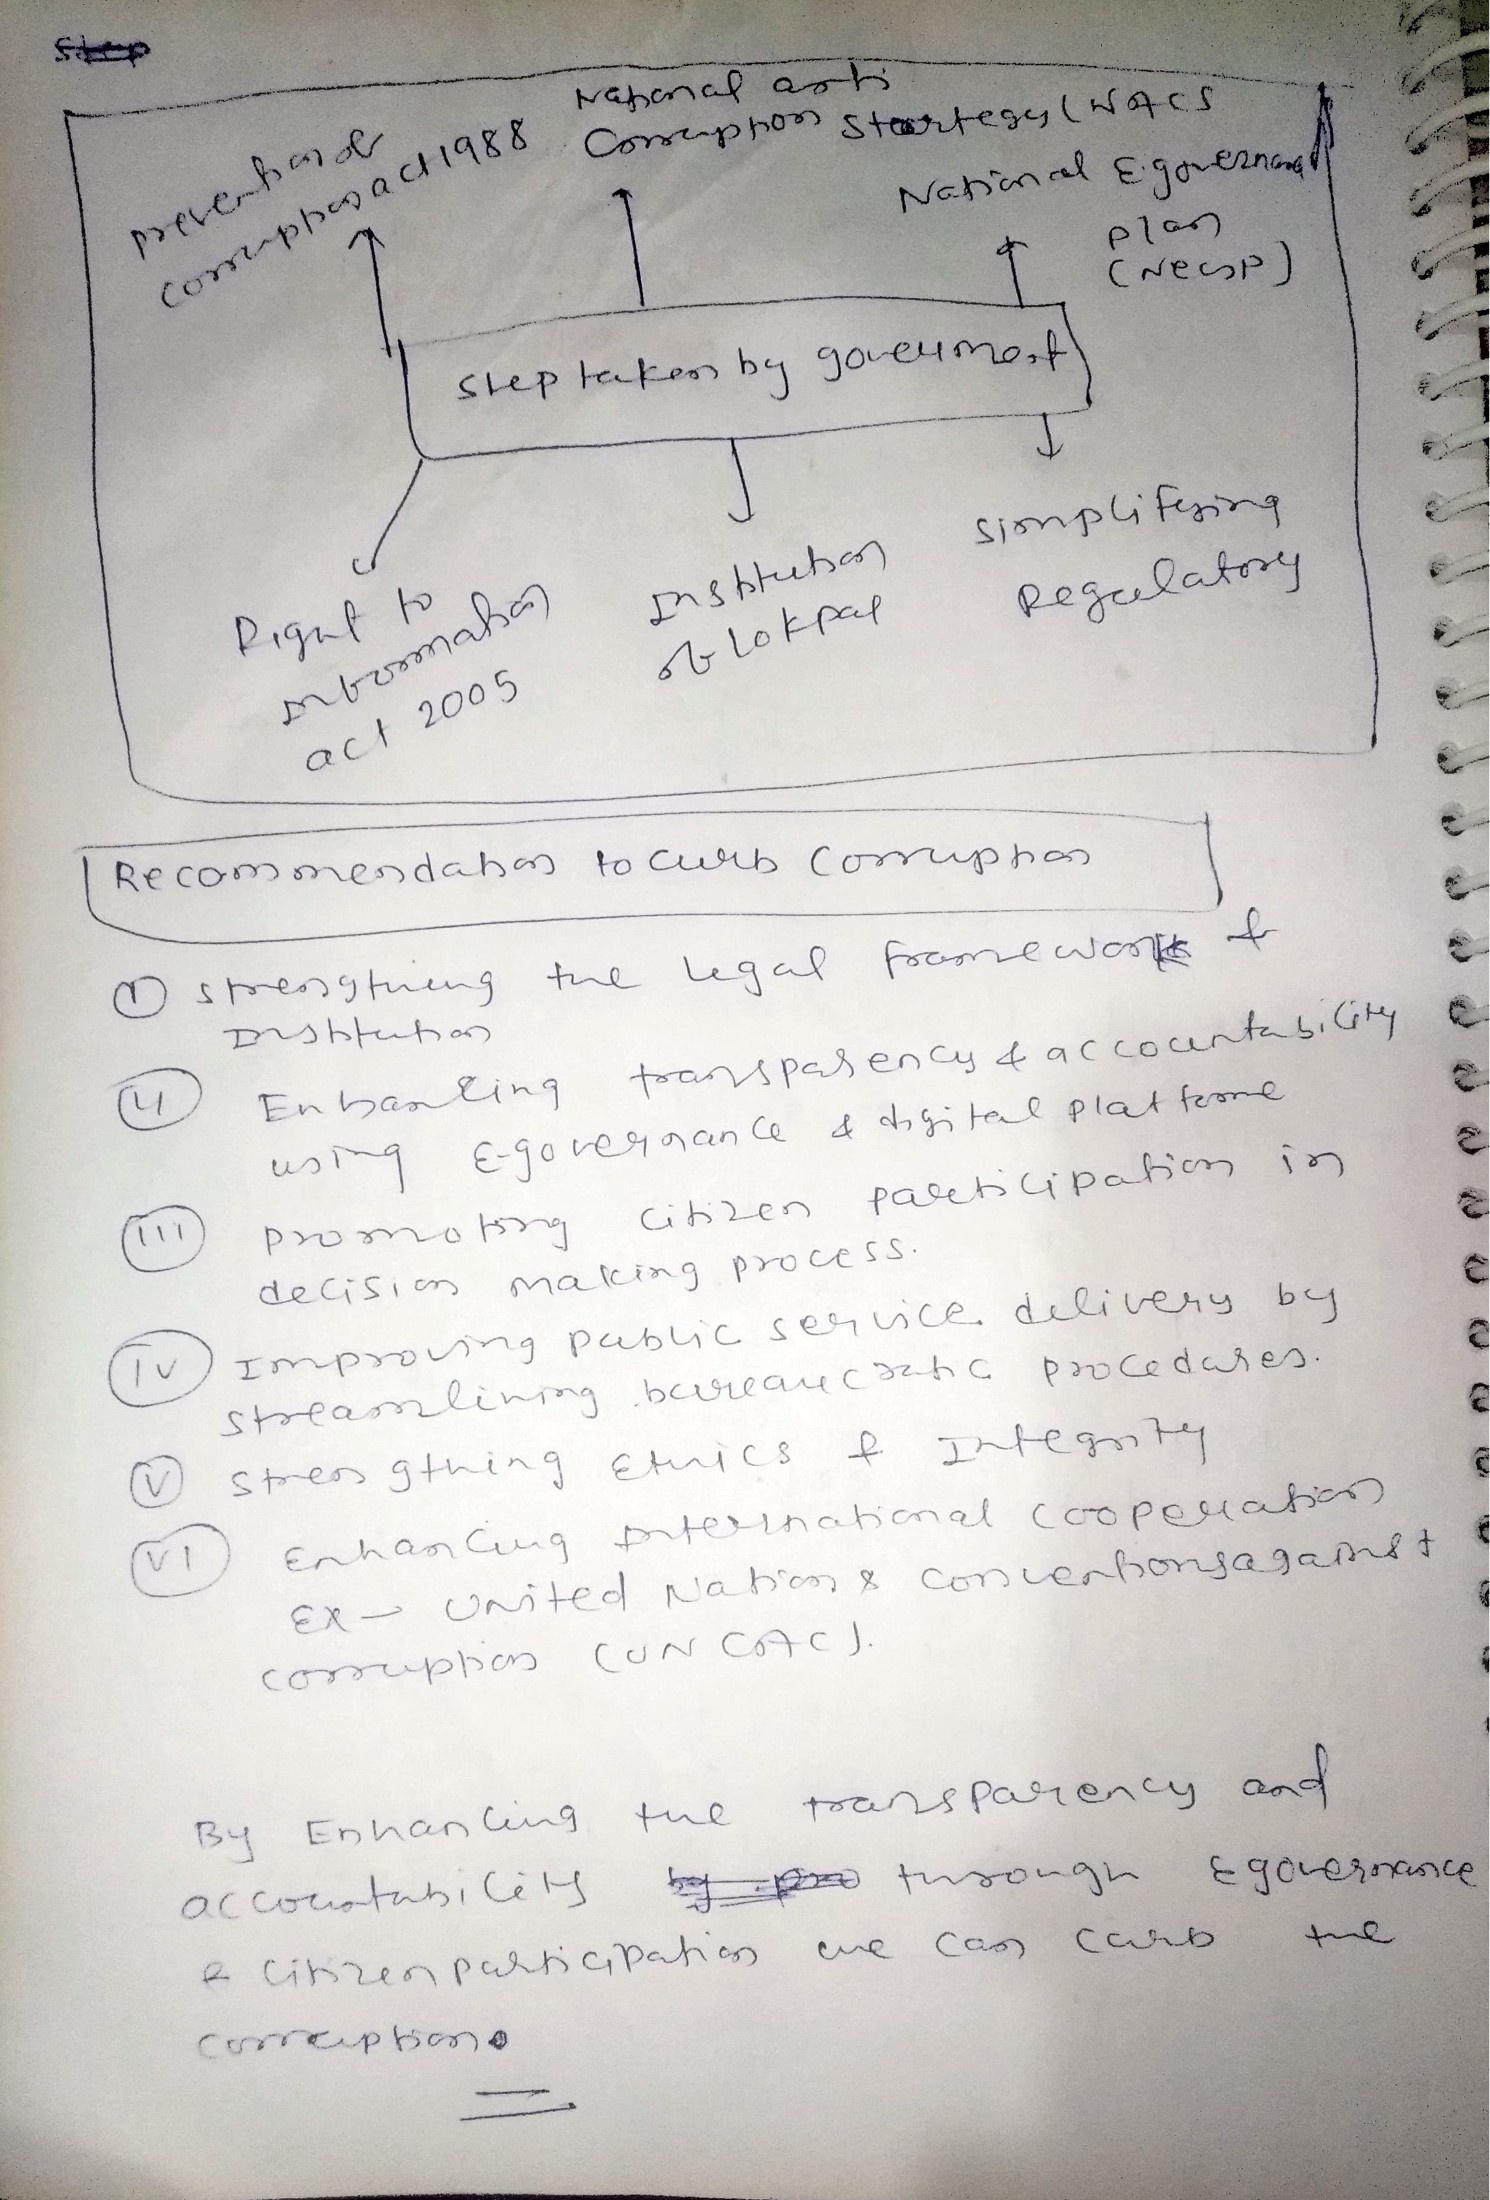 Step
prevention of
corruption act 1988
National anti
Corruption Startegy (NACS
National E.governance
plan
(NeGP)
Step taken by goverment
Right to
Information
act 2005
Institution
of Lokpal
simplifying
Regulatory
Recommendation to curb Corruption
(I) strengthing the legal framework &
Institution
(II) Enhancing transparency & accountability
using E-governance & digital platform
(III) promoting citizen participation in
decision making process.
(IV) Improving public service delivery by
streamlining bureaucratic procedures.
(V) strengthing Ethics & Integrity
(VI) Enhancing International cooperation
Ex - United Nations conventions against
corruption (UNCAC).
By Enhancing the transparency and
accountability by pro through Egovernance
& citizen participation we can curb the
corruption.